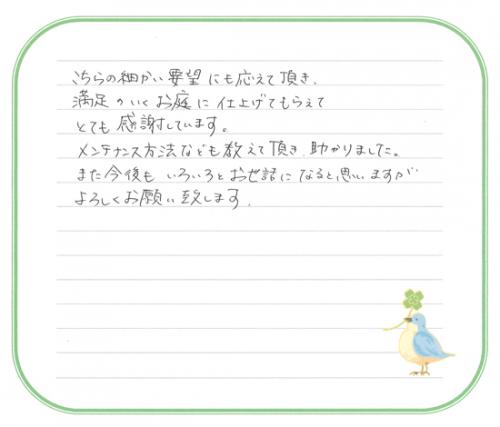 こちらの細かい要望にも応えて頂き、
満足のいくお庭に仕上げてもらえて
とても感謝しています。
メンテナンス方法なども教えて頂き、助かりました。
また今後もいろいろとお世話になると思いますが
よろしくお願い致します。